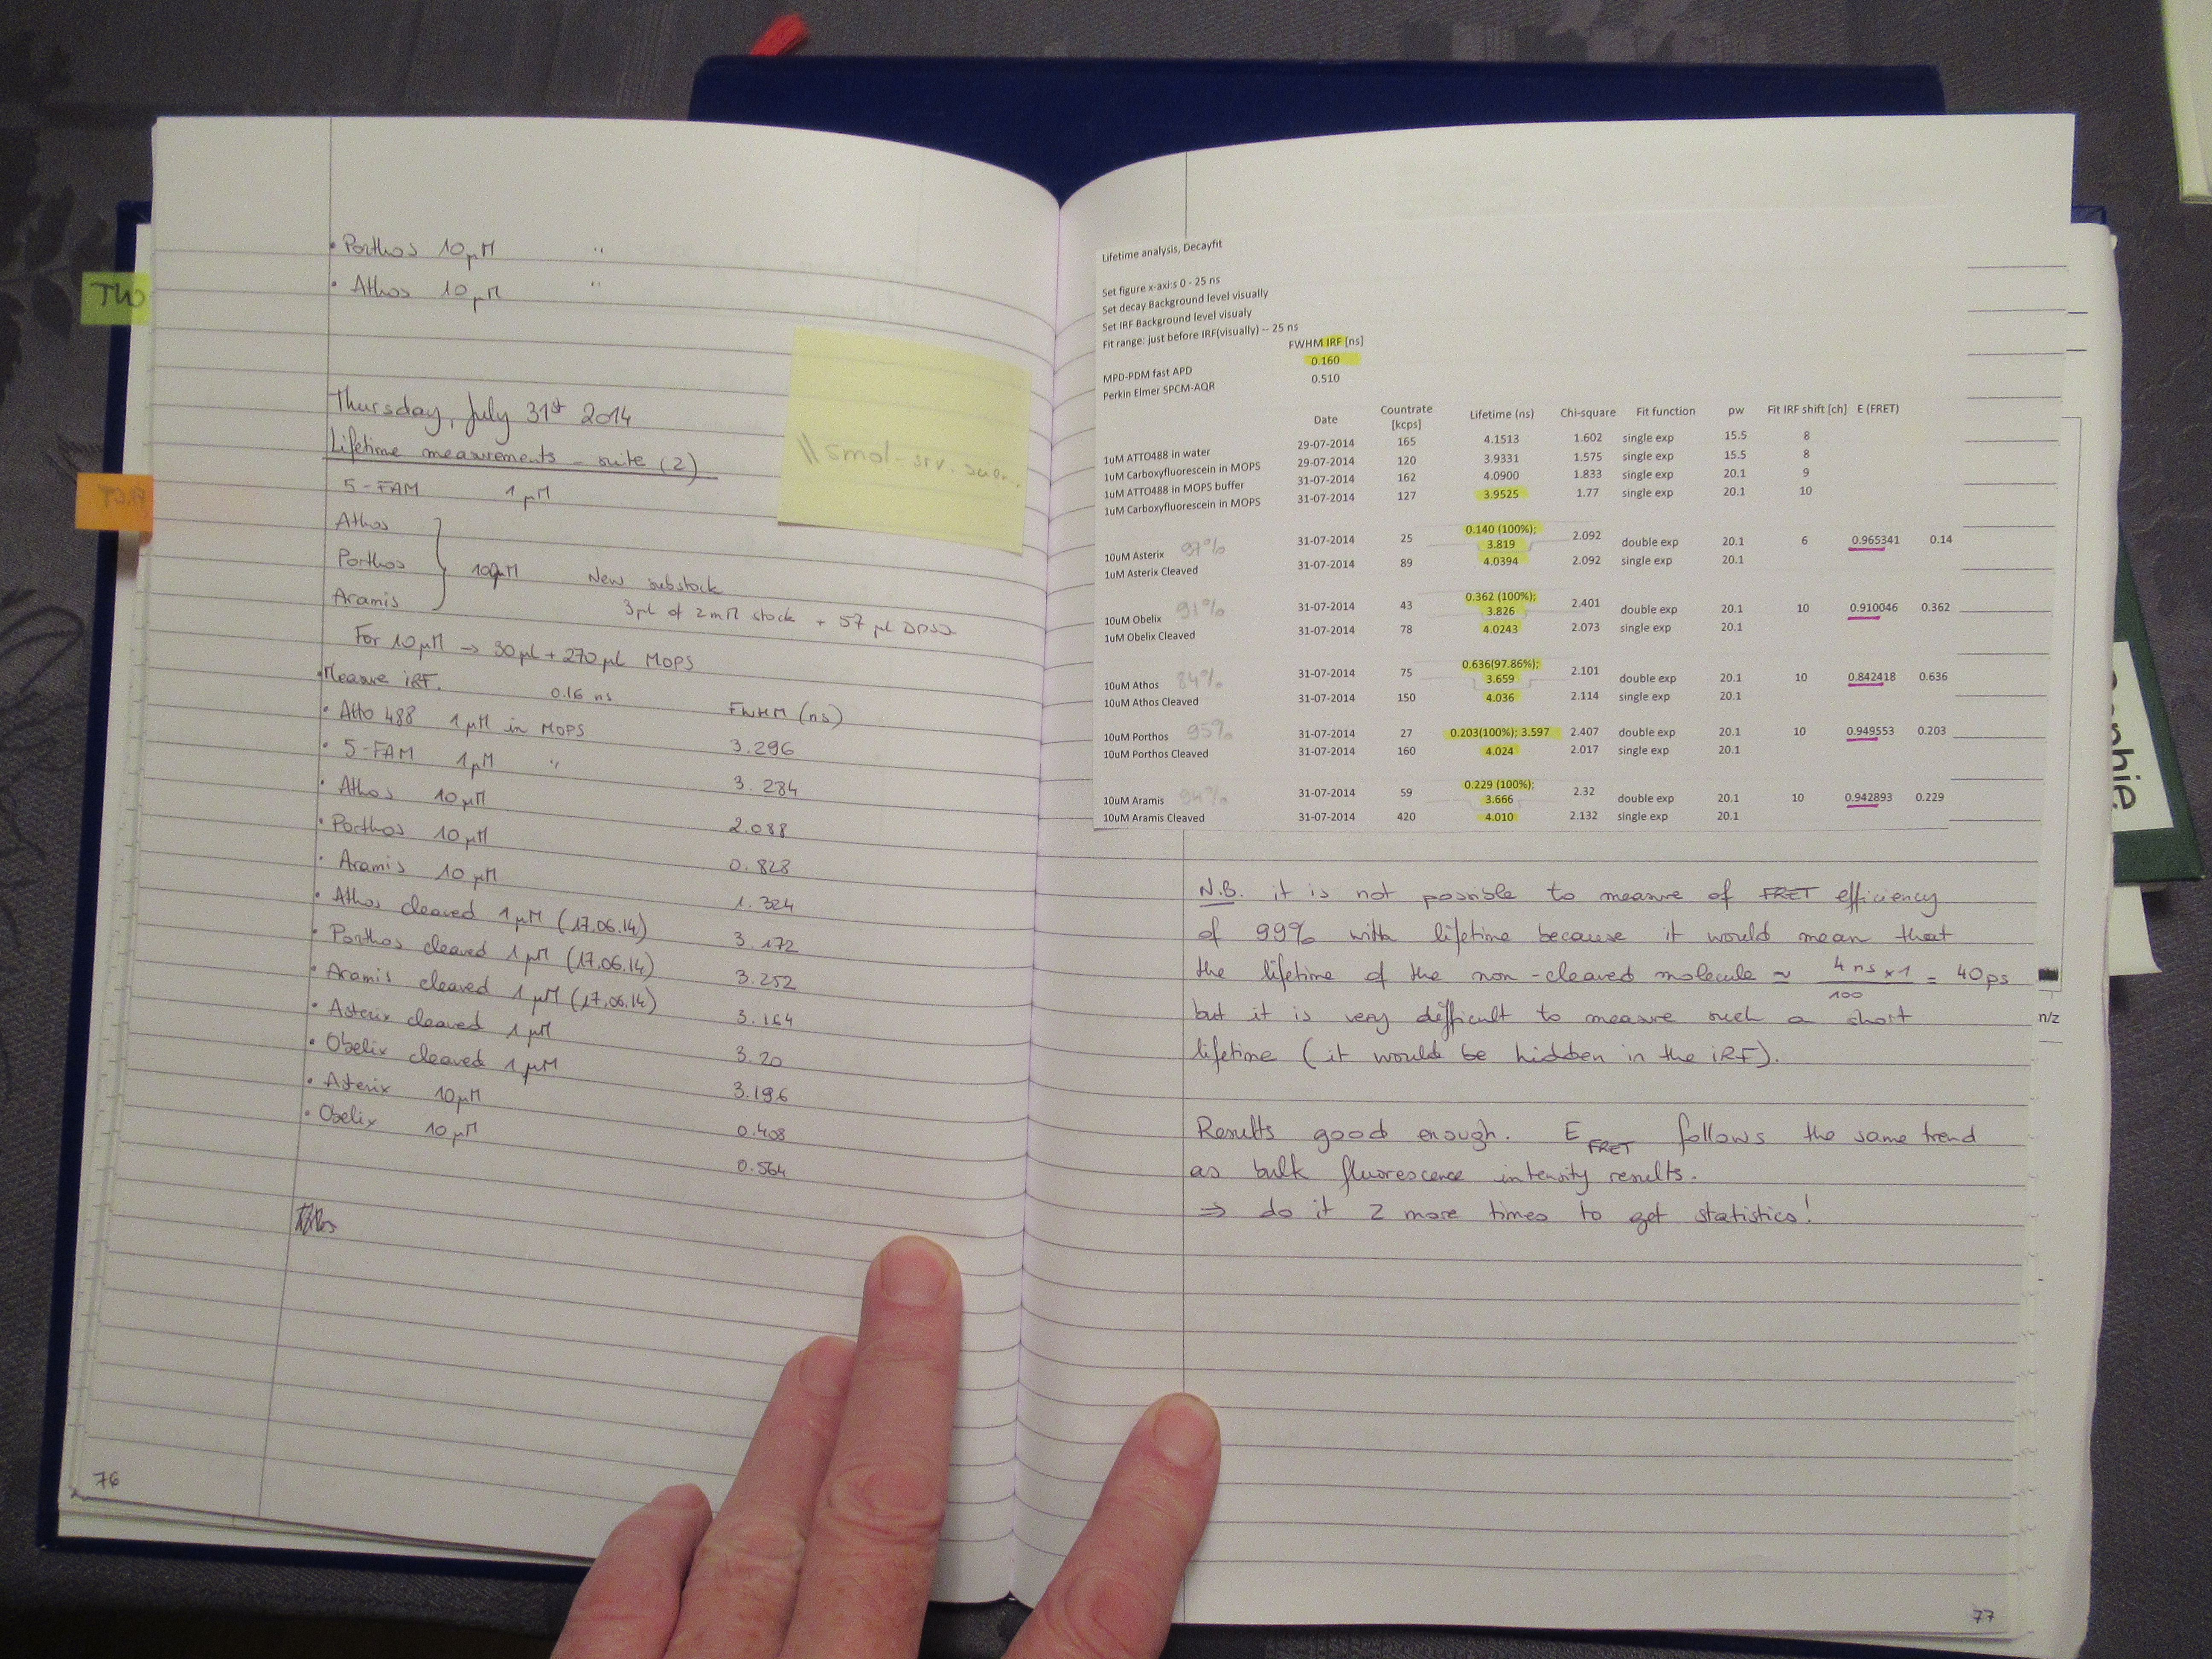 • Porthos 10 µM "
• Athos 10 µM "
TW
Thursday, July 31st 2014
Lifetime measurements - suite (2)
5-FAM 1 µM
Athos
Porthos 10 µM New substock
Aramis 3 µl of 2 mM stock + 57 µl
For 10 µM → 30 µl + 270 µl MOPS
• Measure iRF. 0.16 ns FWHM (ns)
• Atto 488 1 µM in MOPS 3.296
• 5-FAM 1 µM " 3.284
• Athos 10 µM 2.088
• Porthos 10 µM 0.828
• Aramis 10 µM 1.324
• Athos cleaved 1 µM (17.06.14) 3.172
• Porthos cleaved 1 µM (17.06.14) 3.252
• Aramis cleaved 1 µM (17.06.14) 3.164
• Asterix cleaved 1 µM 3.20
• Obelix cleaved 1 µM 3.196
• Asterix 10 µM 0.408
• Obelix 10 µM 0.564
76
\\smol-srv.
Lifetime analysis, Decayfit
Set figure x-axi:s 0 - 25 ns
Set decay Background level visually
Set IRF Background level visualy
Fit range: just before IRF(visually) -- 25 ns
FWHM IRF [ns]
MPD-PDM fast APD 0.160
Perkin Elmer SPCM-AQR 0.510
Date Countrate [kcps] Lifetime (ns) Chi-square Fit function pw Fit IRF shift [ch] E (FRET)
1uM ATTO488 in water 29-07-2014 165 4.1513 1.602 single exp 15.5 8
1uM Carboxyfluorescein in MOPS 29-07-2014 120 3.9331 1.575 single exp 15.5 8
1uM ATTO488 in MOPS buffer 31-07-2014 162 4.0900 1.833 single exp 20.1 9
1uM Carboxyfluorescein in MOPS 31-07-2014 127 3.9525 1.77 single exp 20.1 10
10uM Asterix 97% 31-07-2014 25 0.140 (100%); 3.819 2.092 double exp 20.1 6 0.965341 0.14
1uM Asterix Cleaved 31-07-2014 89 4.0394 2.092 single exp 20.1
10uM Obelix 91% 31-07-2014 43 0.362 (100%); 3.826 2.401 double exp 20.1 10 0.910046 0.362
1uM Obelix Cleaved 31-07-2014 78 4.0243 2.073 single exp 20.1
10uM Athos 84% 31-07-2014 75 0.636(97.86%); 3.659 2.101 double exp 20.1 10 0.842418 0.636
10uM Athos Cleaved 31-07-2014 150 4.036 2.114 single exp 20.1
10uM Porthos 95% 31-07-2014 27 0.203(100%); 3.597 2.407 double exp 20.1 10 0.949553 0.203
10uM Porthos Cleaved 31-07-2014 160 4.024 2.017 single exp 20.1
10uM Aramis 94% 31-07-2014 59 0.229 (100%); 3.666 2.32 double exp 20.1 10 0.942893 0.229
10uM Aramis Cleaved 31-07-2014 420 4.010 2.132 single exp 20.1
N.B. it is not possible to measure of FRET efficiency
of 99% with lifetime because it would mean that
the lifetime of the non-cleaved molecule ≈ 4 ns x 1 / 100 = 40 ps
but it is very difficult to measure such a short
lifetime (it would be hidden in the iRF).
Results good enough. E FRET follows the same trend
as bulk fluorescence intensity results.
⇒ do it 2 more times to get statistics!
77
n/z